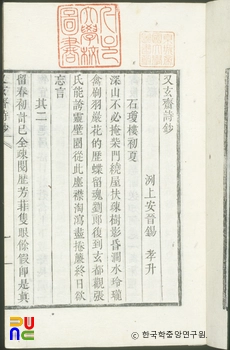 又玄齋詩鈔
洌上安晉錫 孝升
石瓊樓初夏
深山不必掩柴門繞屋扶疎樹影昏澗水玲瓏
禽刷羽巖花的歷蝶留魂劉郎復到玄都觀張
氏能誇靈壁園從此塵襟淘寫盡捲簾終日欲
忘言
其二
留春初計已全疎閱歷芳菲隻眼餘假卽是眞
又玄齋詩鈔
한국학중앙연구원